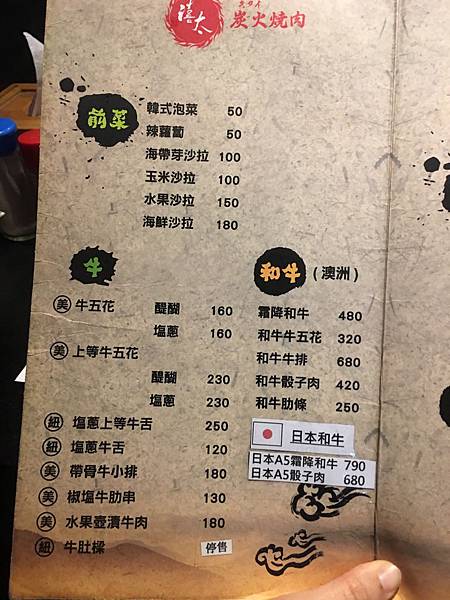 禧太 炭火燒肉
前菜
韓式泡菜 50
辣蘿蔔 50
海帶芽沙拉 100
玉米沙拉 100
水果沙拉 150
海鮮沙拉 180
牛
美 牛五花 醍醐 160
塩蔥 160
美 上等牛五花
醍醐 230
塩蔥 230
紐 塩蔥上等牛舌 250
紐 塩蔥牛舌 120
美 帶骨牛小排 180
美 椒塩牛肋串 130
美 水果壺漬牛肉 180
紐 牛肚樑 停售
和牛 (澳洲)
霜降和牛 480
和牛牛五花 320
和牛牛排 680
和牛骰子肉 420
和牛肋條 250
日本和牛
日本A5霜降和牛 790
日本A5骰子肉 680